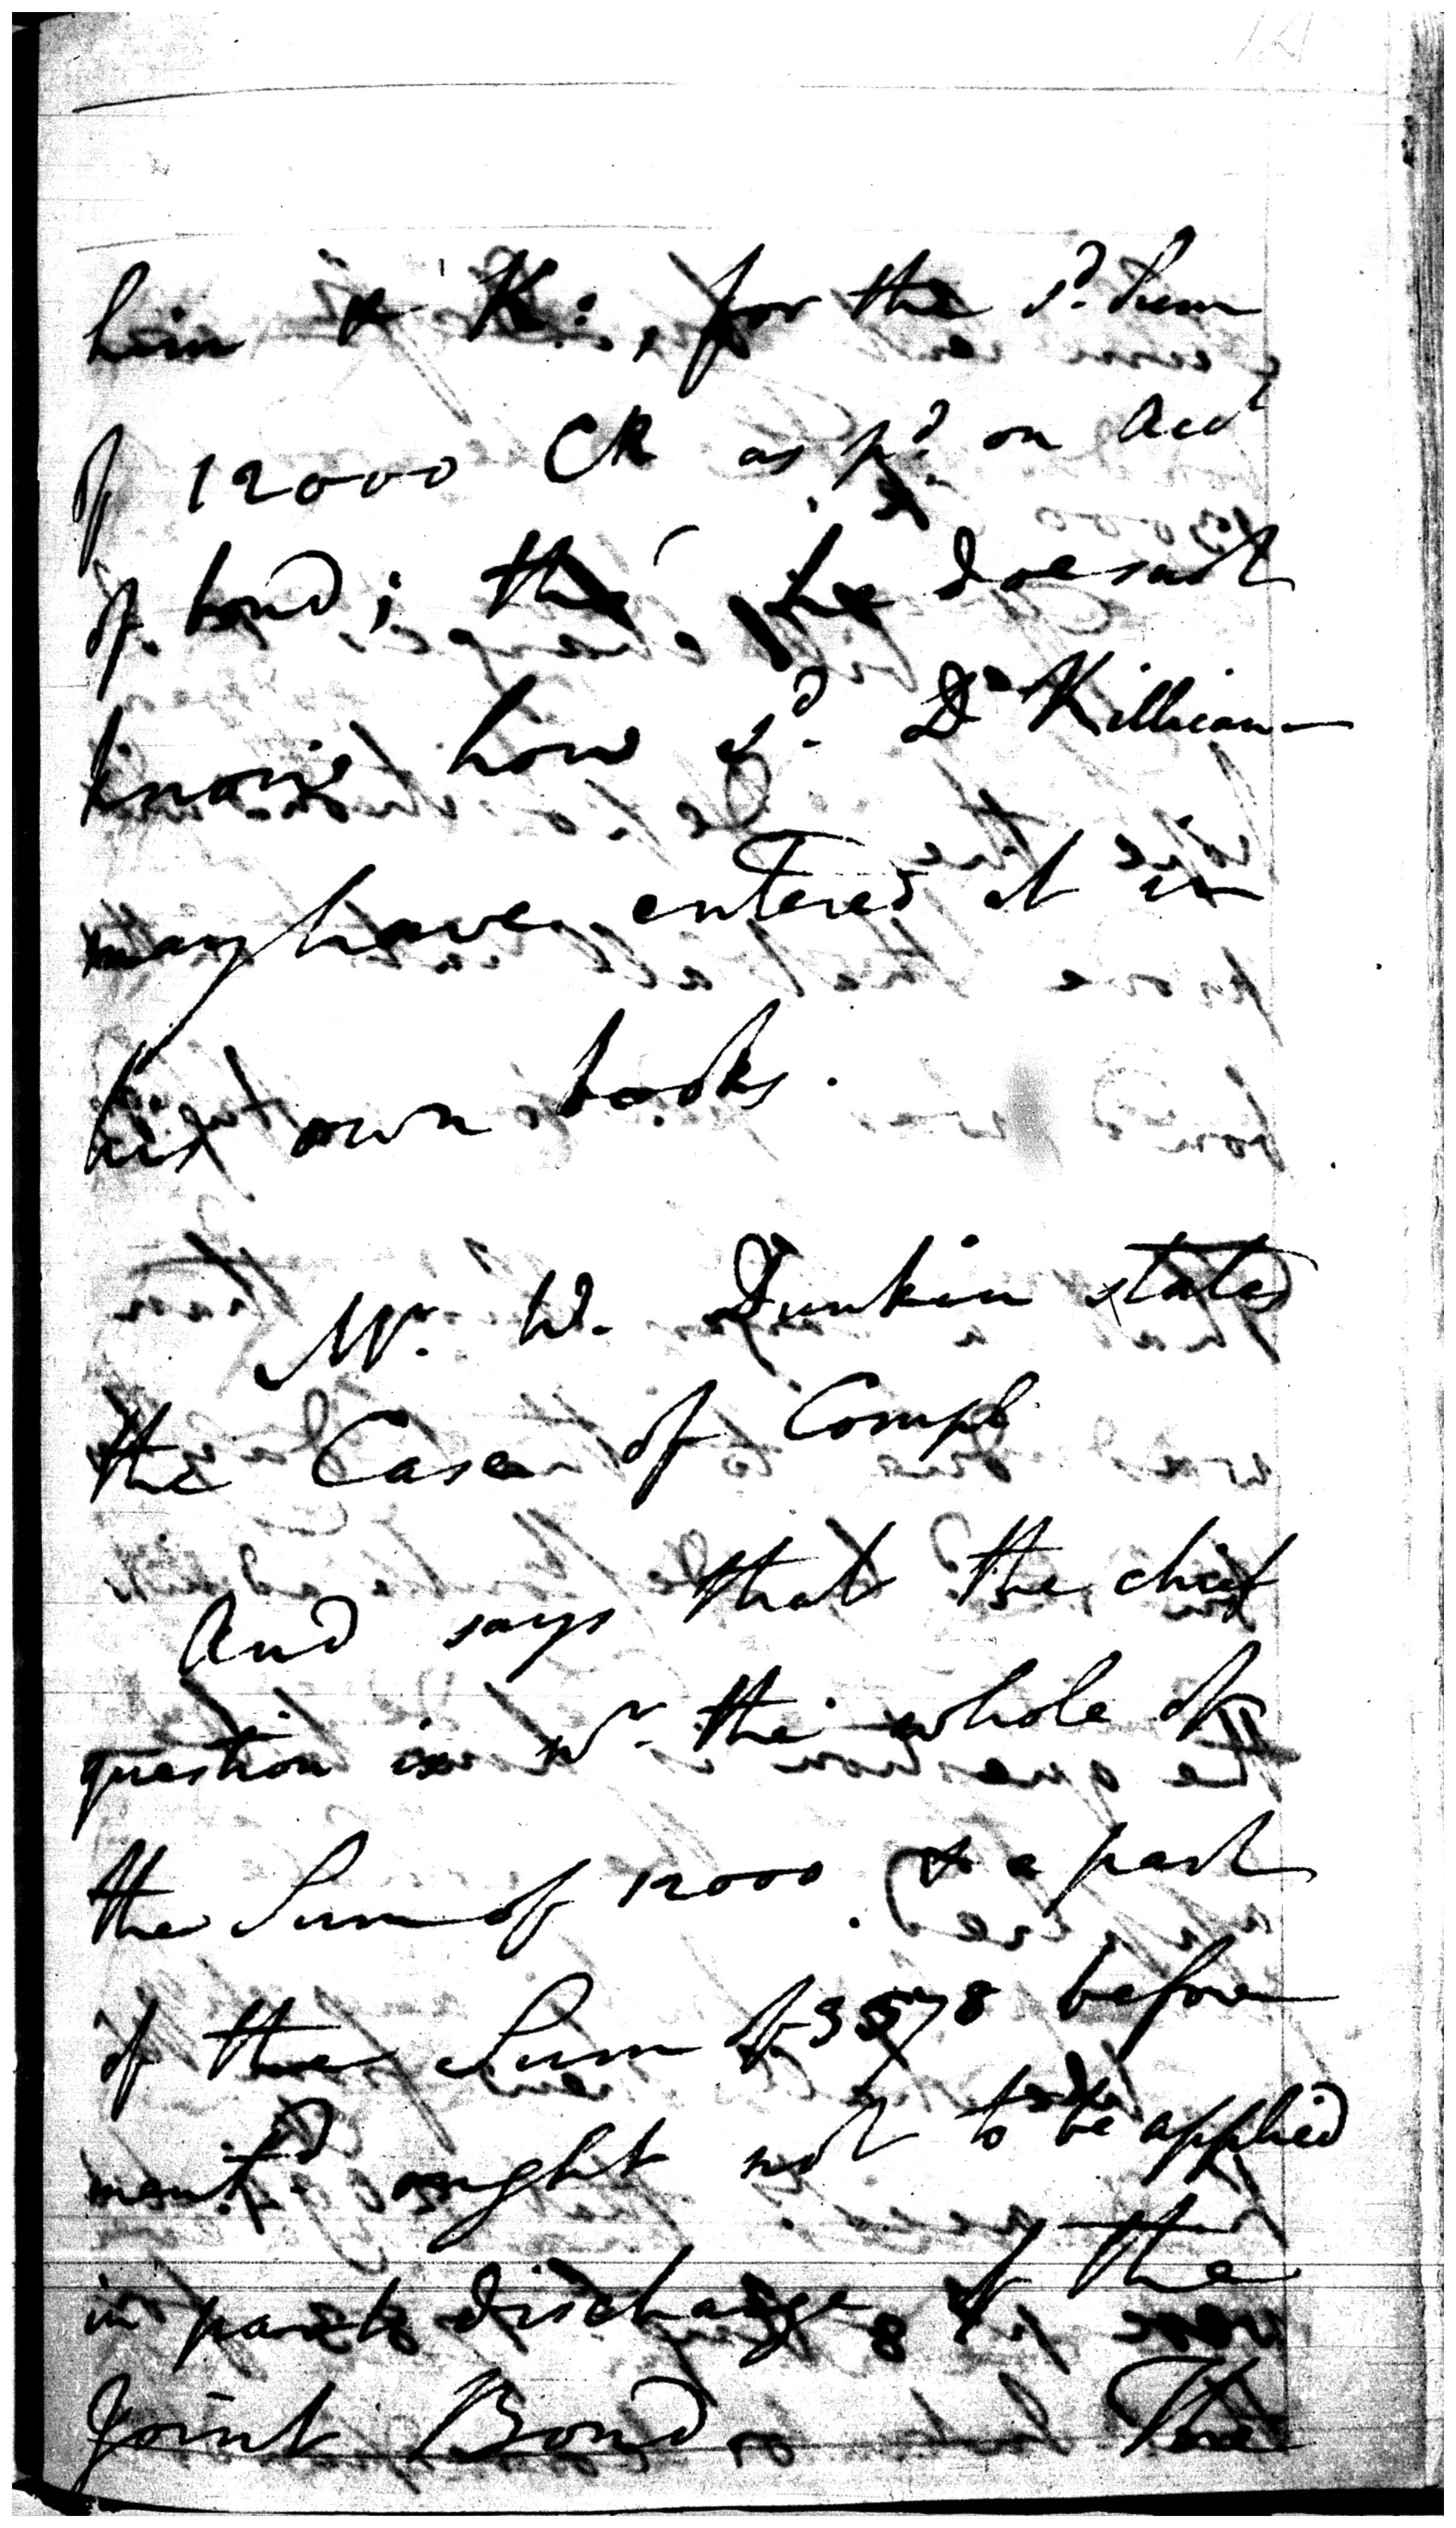 him & K: for the sd. Sum
of 12000 CR as pd. on Acct
of bond; tho' he does not
know how sd. Dr Killican
may have entered it in
his own books.
Mr. W. Dunkin states
the Case of Compl.
And says that the chief
question is wr. the whole of
the Sum of 12000 & a part
of the Sum of 3578 before
ment.d ought not to be applied
in part discharge of the
joint Bond The